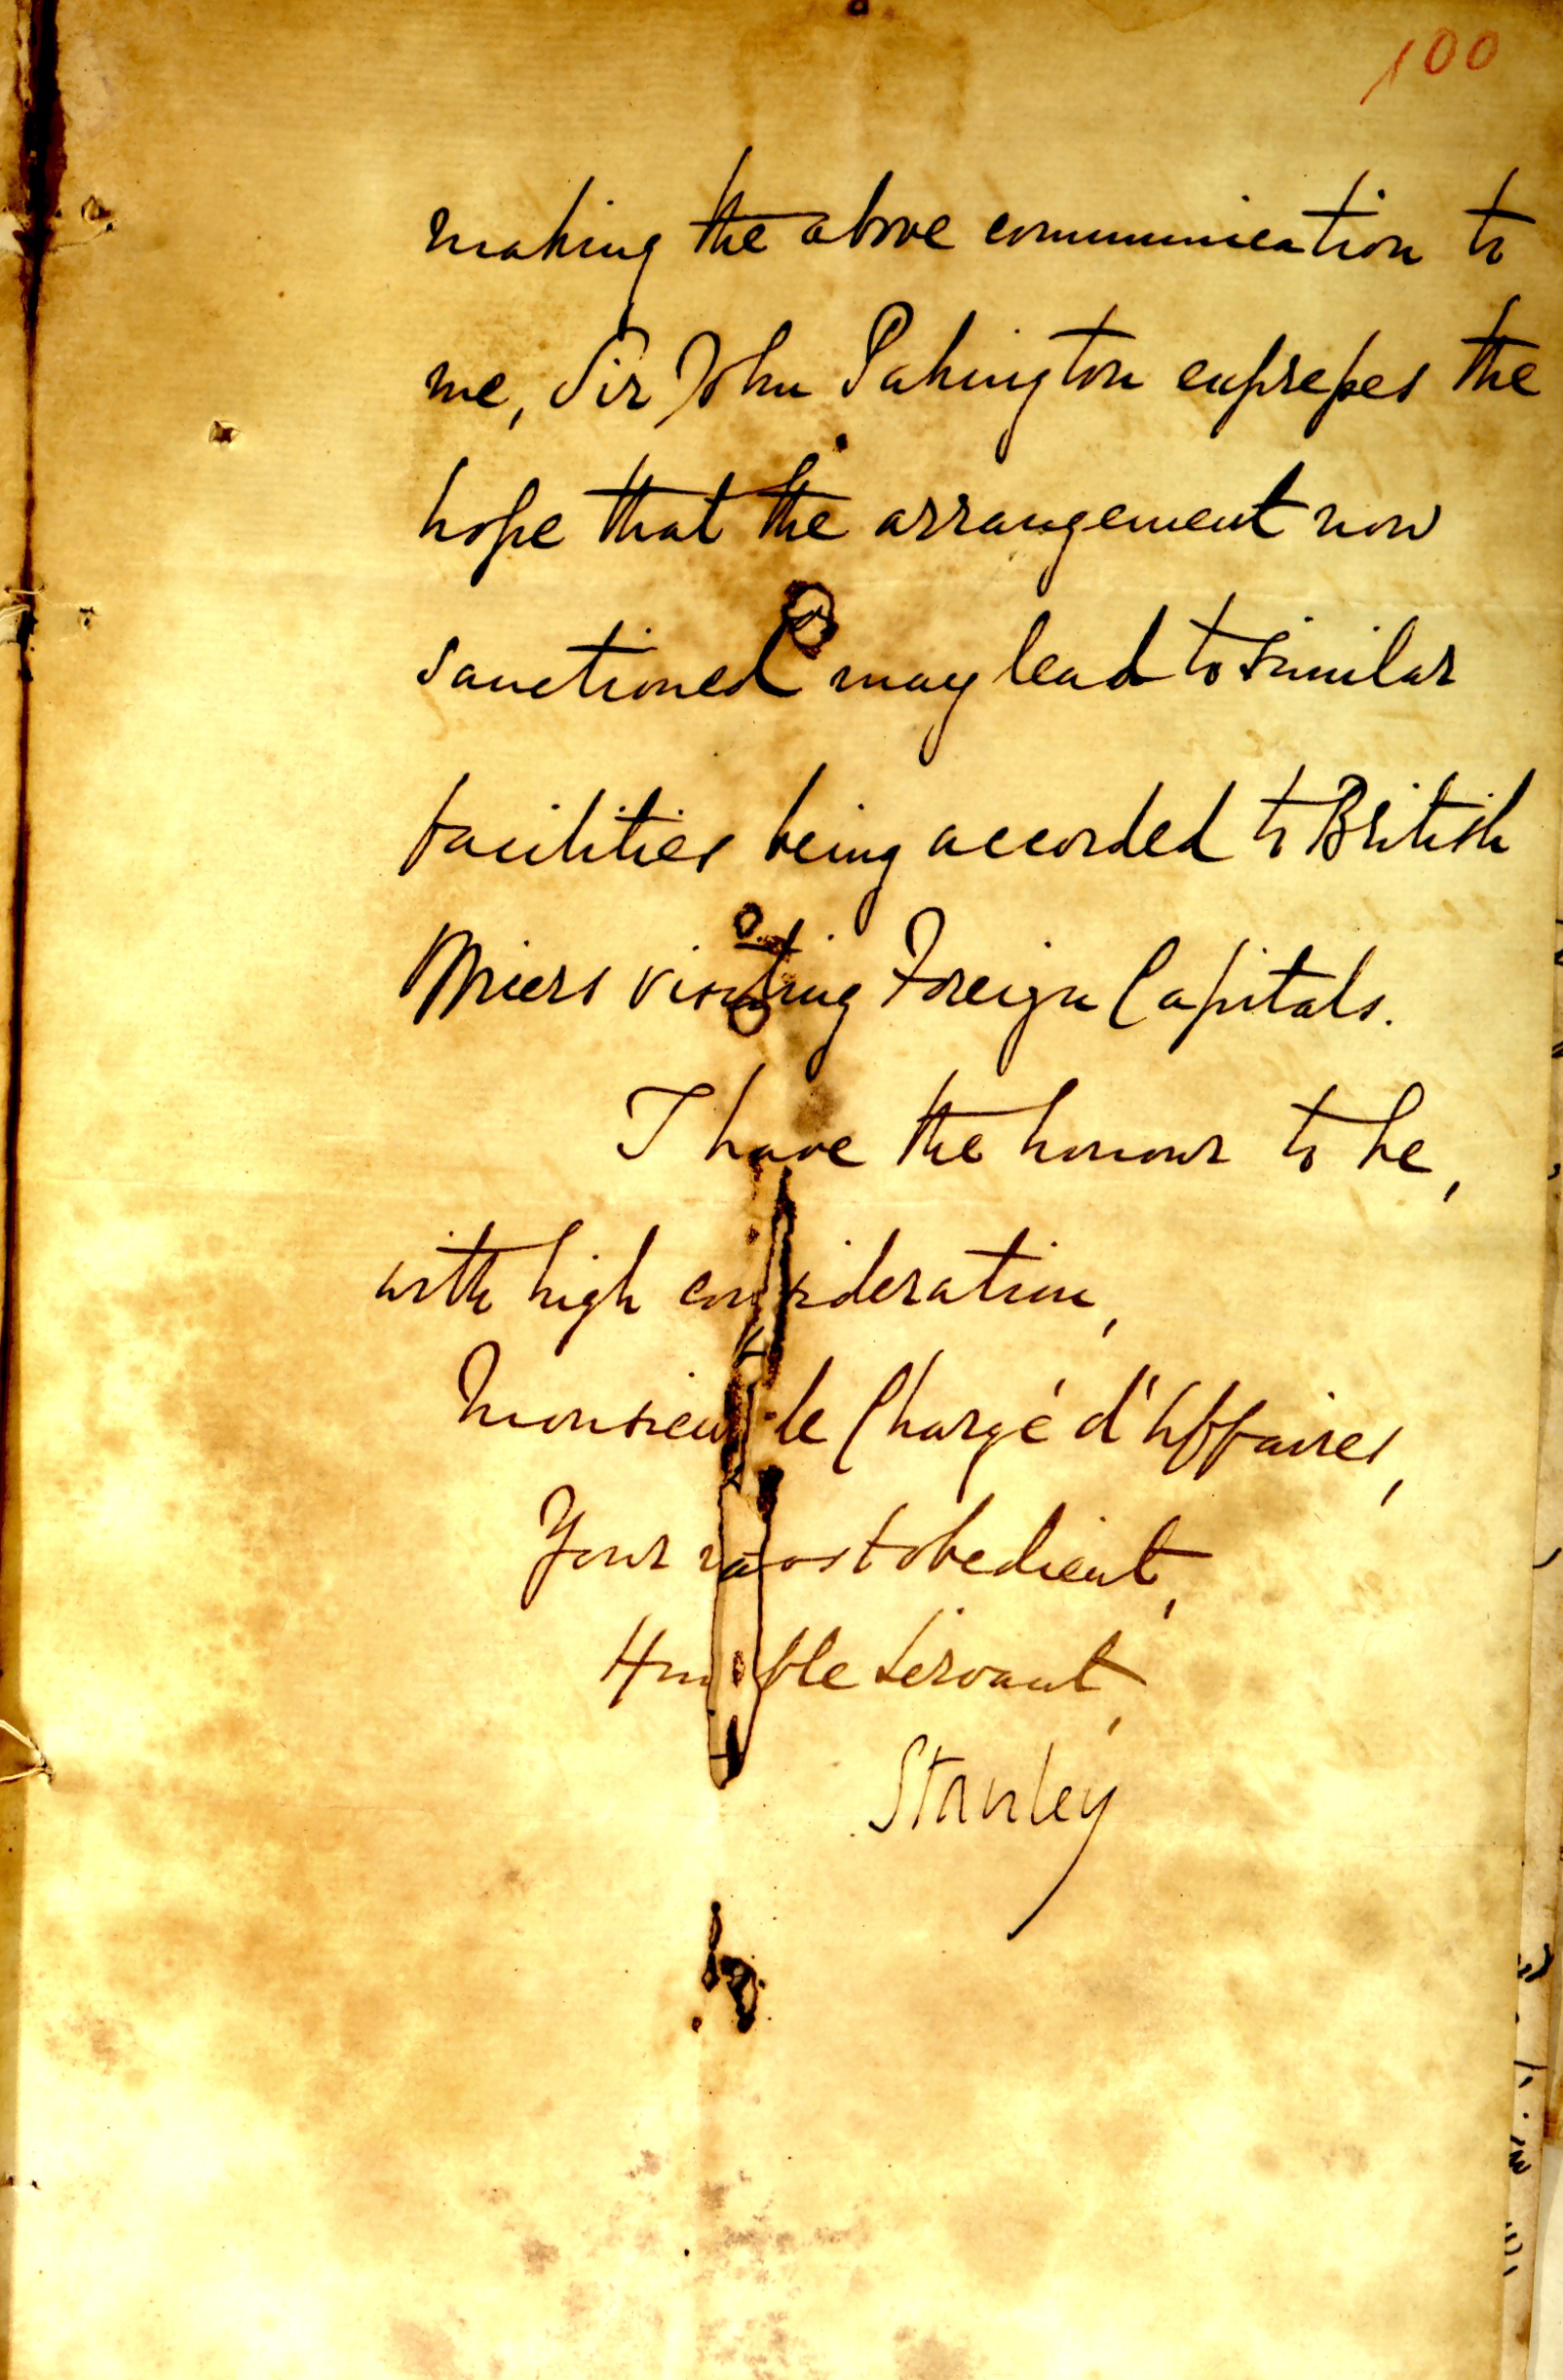 100
making the above communication to
me, Sir John Pakington expresses the
hope that the arrangement now
sanctioned may lead to similar
facilities being accorded to British
Officers visiting Foreign Capitals.
I have the honour to be,
with high consideration,
Monsieur le Chargé d'Affaires,
Your most obedient,
Humble Servant,
Stanley